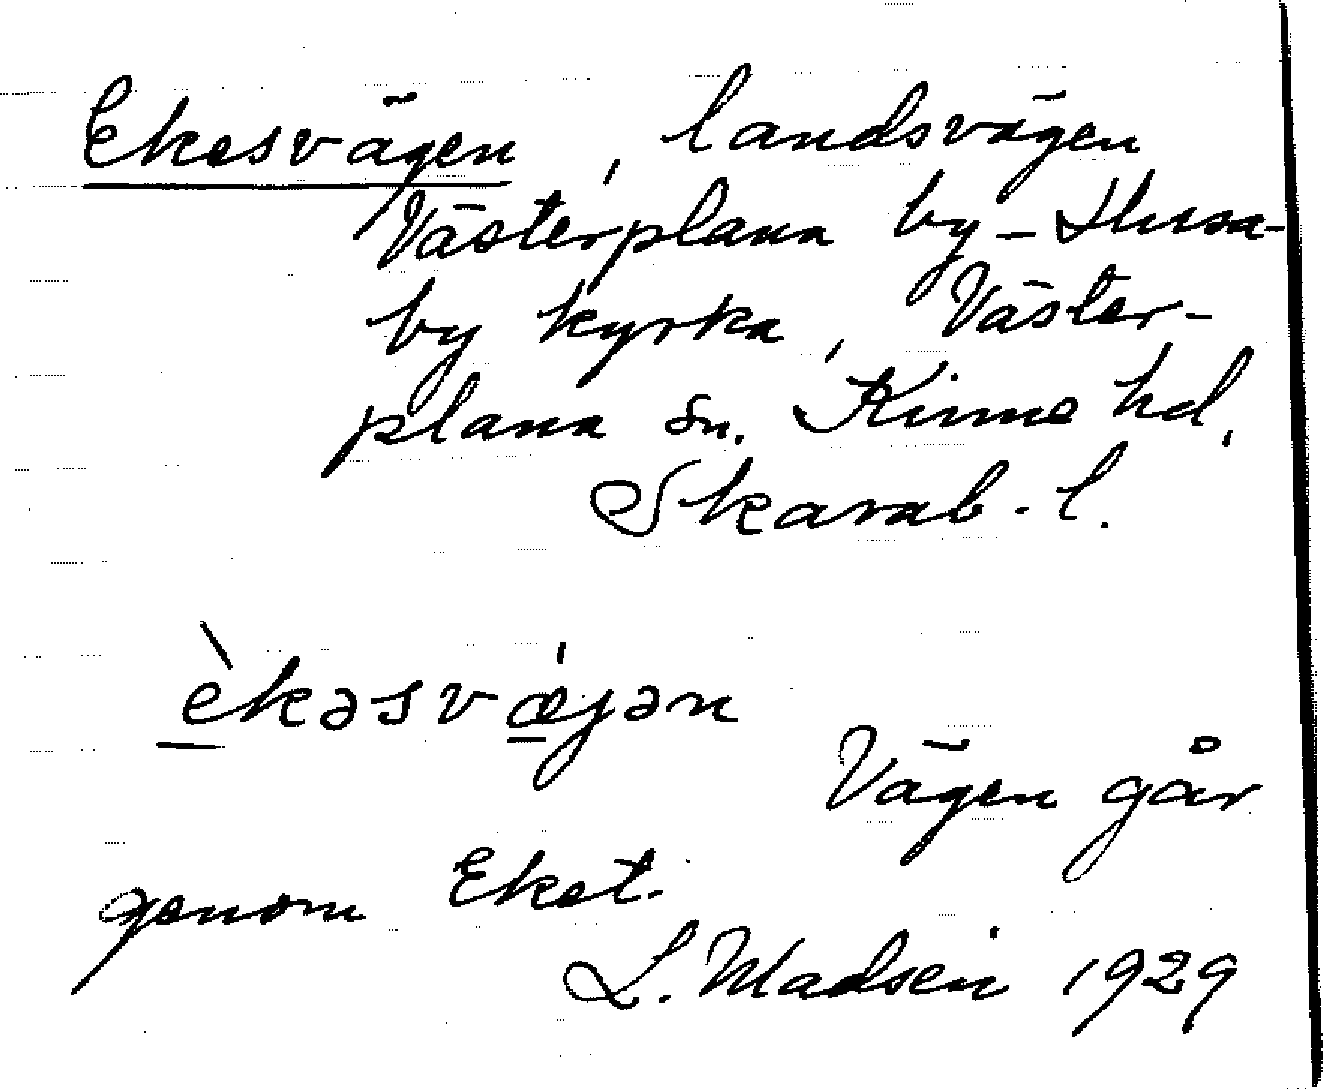 Ekesvägen, landsvägen
Västerplana by - Husa-
by kyrka, Väster-
plana sn. Kinne hd,
Skarab. l.
èkəsvæ̍jən
Vägen går
genom Eket.
L. Madsén 1929